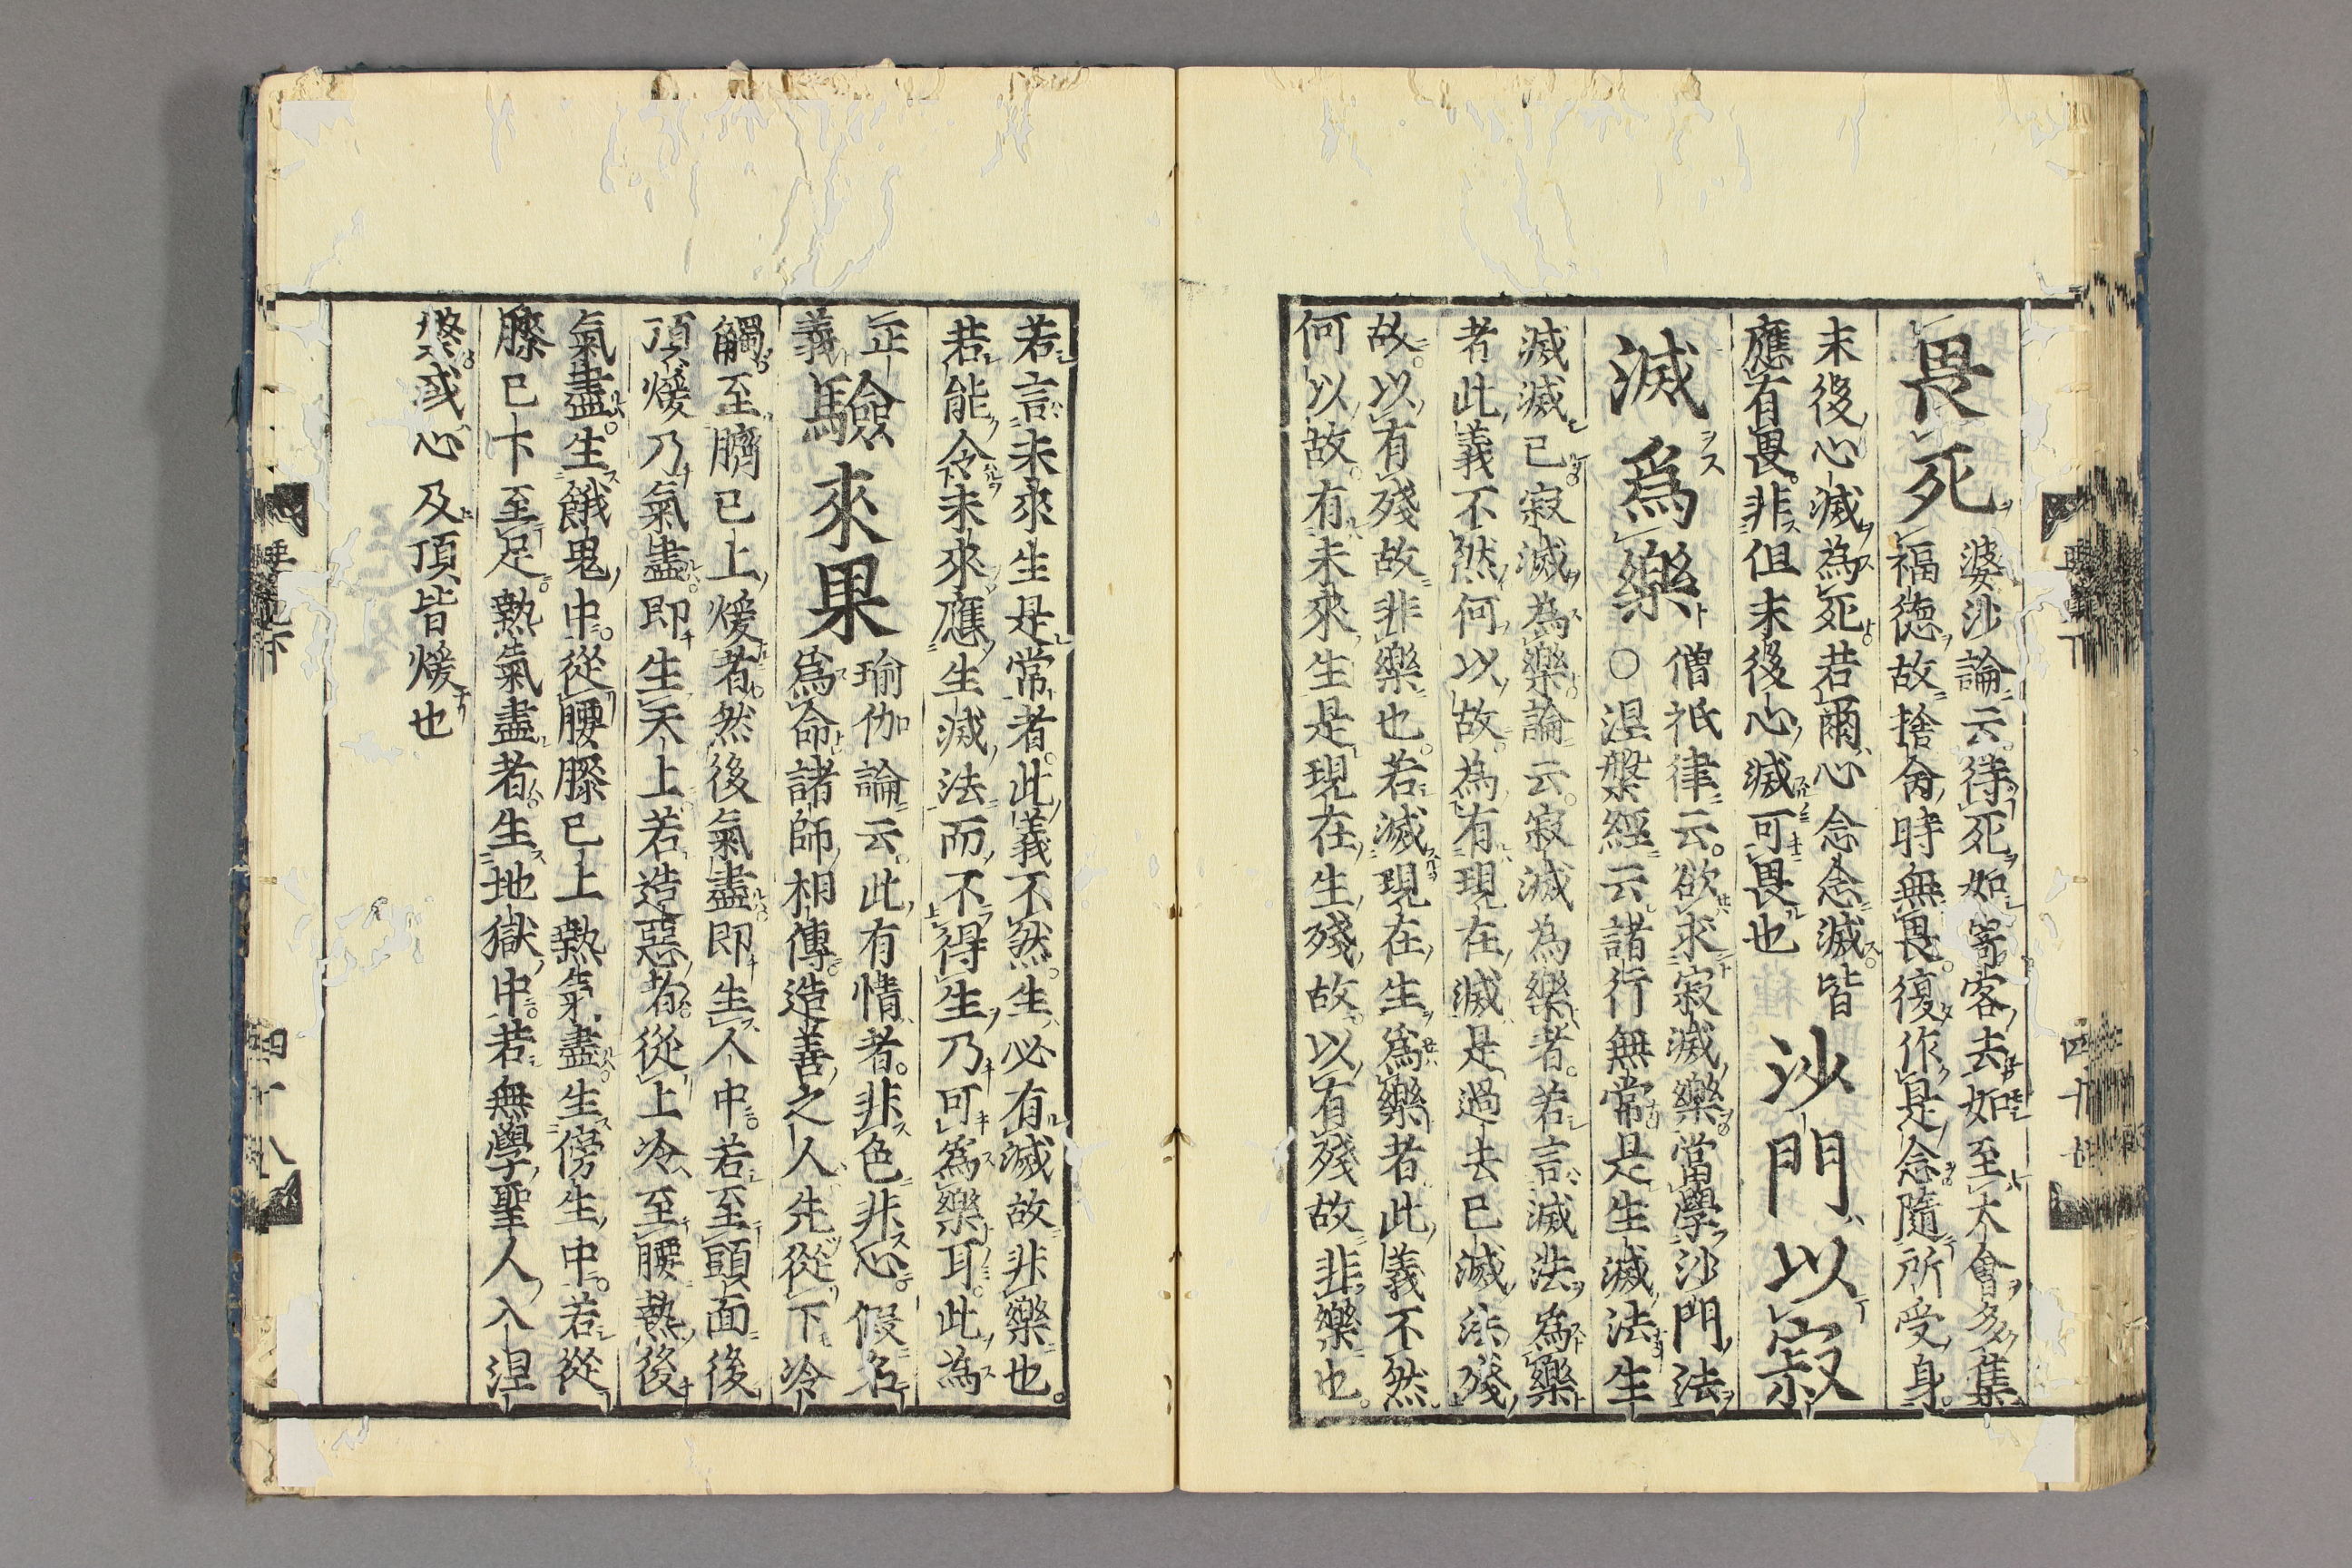 畏死
婆沙論云待死如寄客去如至大會多集
福徳故捨命時無畏復作是念隨所受身
末後心滅為死若爾心念念滅皆
應有畏非但末後心滅可畏也
沙門以寂
滅爲樂
僧祇律云欲求寂滅樂當學沙門法
○涅槃經云諸行無常是生滅法生
滅滅已寂滅為樂論云寂滅為樂者若言滅法爲樂
者此義不然何以故為有現在滅是過去已滅法殘
故以有殘故非樂也若滅現在生爲樂者此義不然
何以故有未來生是現在生殘故以有殘故非樂也
若言未來生是常者此義不然生必有滅故非樂也
若能令未來應生滅法而不得生乃可爲樂耳此為
正
義
驗來果
瑜伽論云此有情者非色非心假名
爲命諸師相傳造善之人先從下冷
觸至臍已上煖者然後氣盡即生人中若至頭面後
頂煖乃氣盡即生天上若造惡者從上冷至腰熱後
氣盡生餓鬼中從腰膝已上熱氣盡生傍生中若從
膝已下至足熱氣盡者生地獄中若無學聖人入涅
槃或心及頂皆煖也
四十八